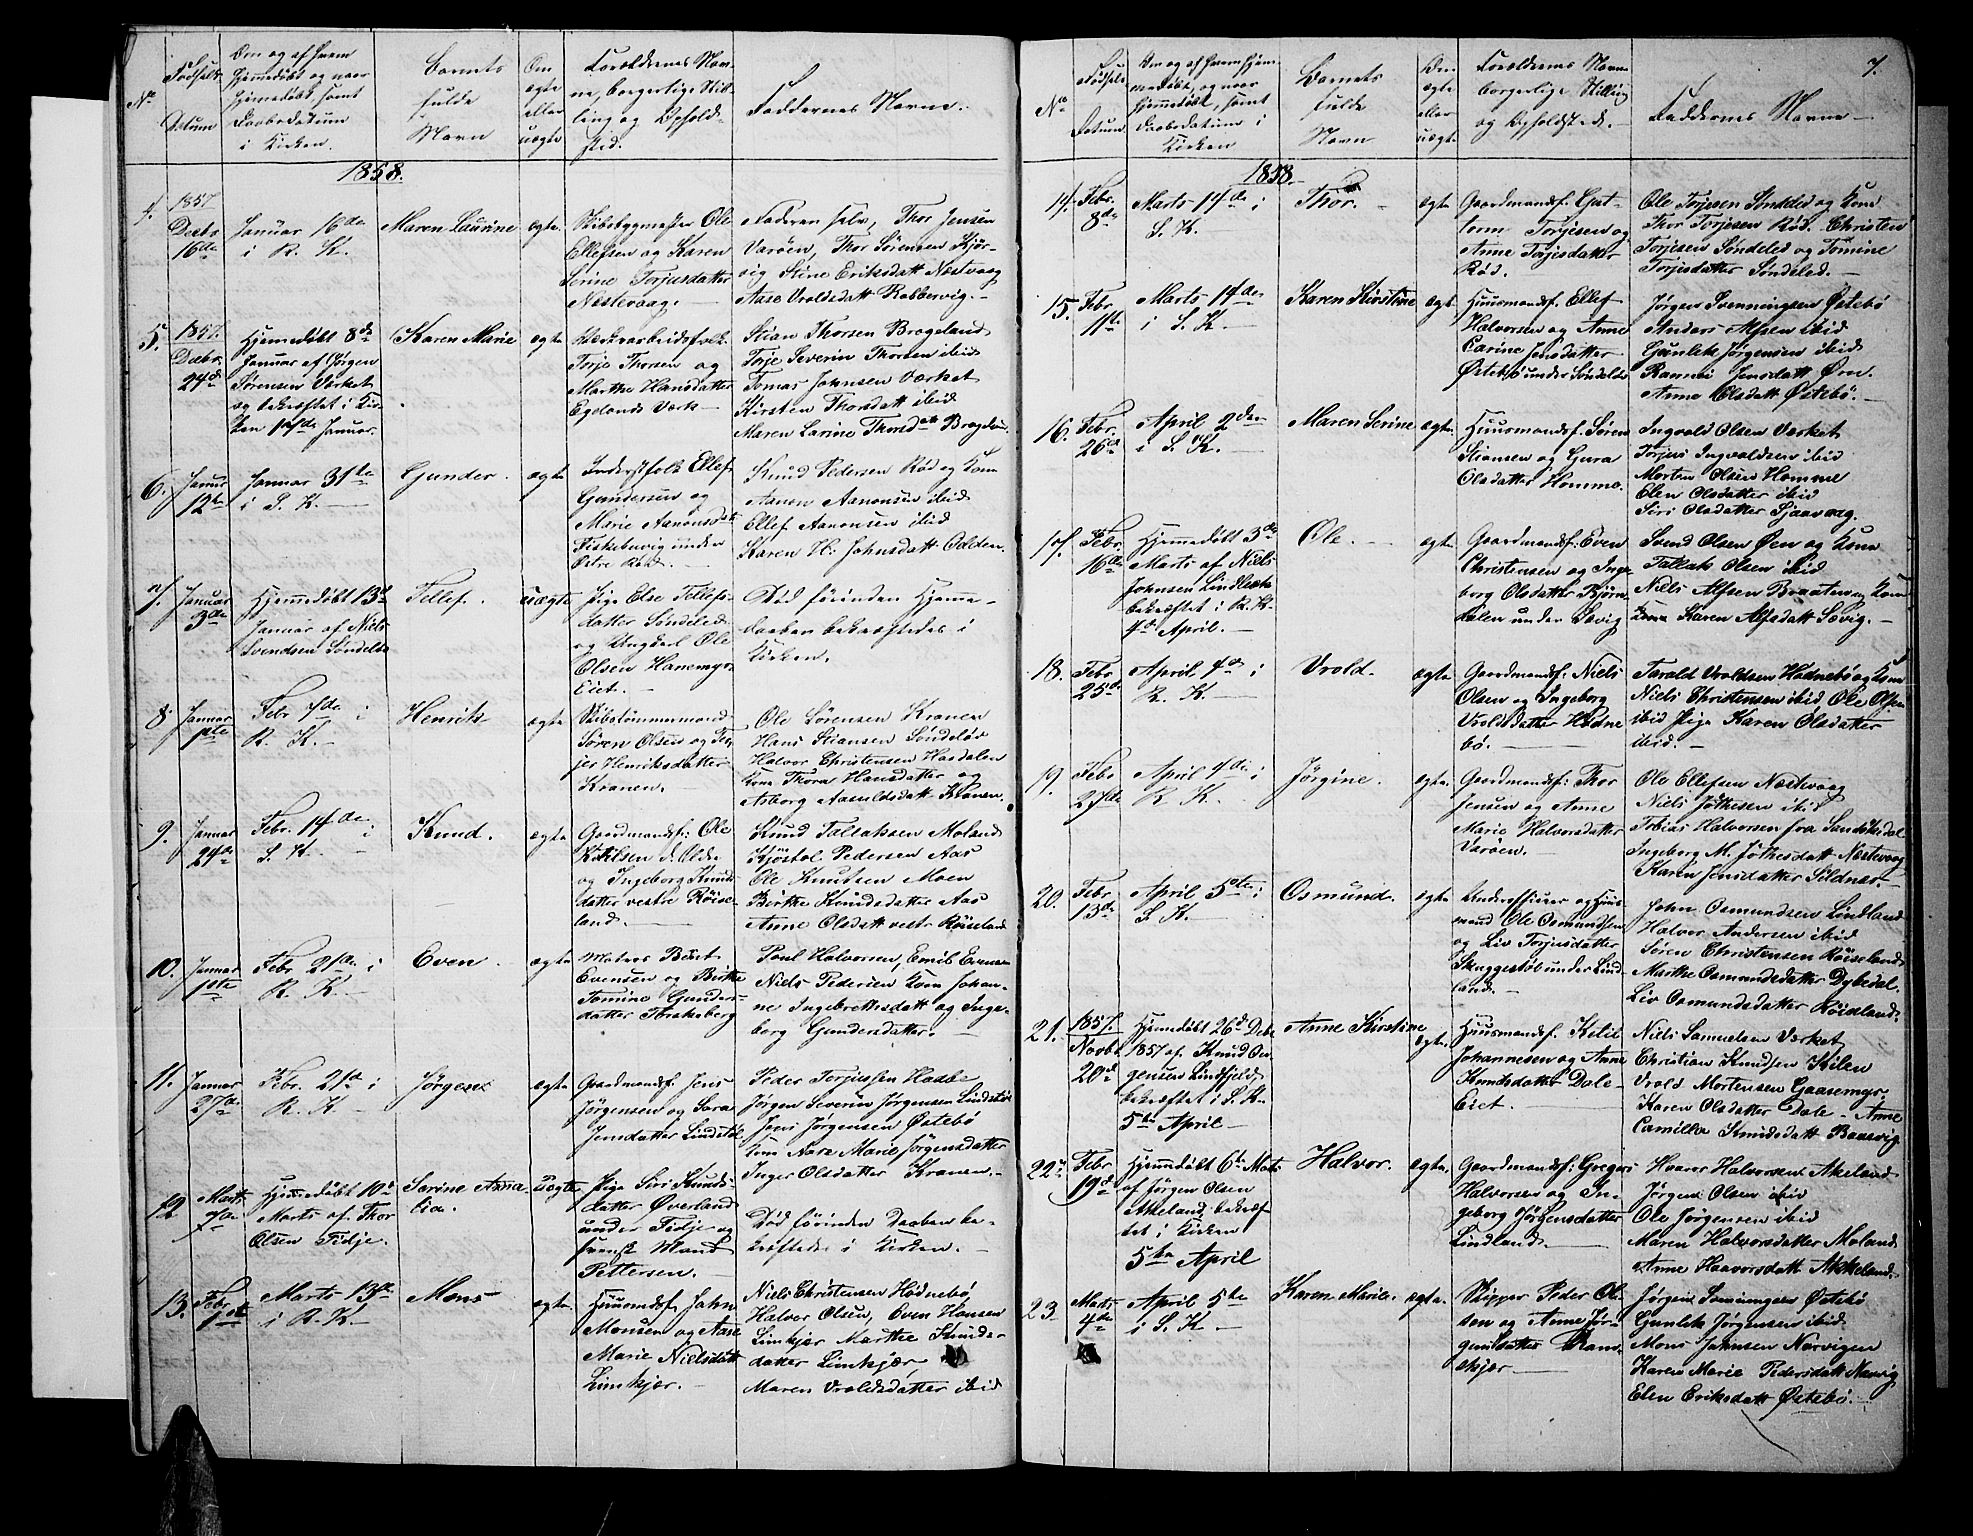 7.
No
Fødsels
Datum
Om og af hvem
hjemmedøbt og naar
hjemmedøbt, samt
Daabsdatum
i Kirken.
Barnets
fulde
Navn
Om
ægte
eller
uægte
Forældrenes Nav-
ne, borgerlige Stil-
ling og Ophold-
sted.
Faddernes Navne.
1858.
4.
1857
Decbr.
16de
Januar 16de
i R. K.
Maren Laurine
ægte.
Skibsbygmester Ole
Ellefsen og Karen
Serine Torjesdatter
Næstevaag.
Faderen selv, Thor Jensen
Varøen, Thor Sørensen Kjør-
vig Stine Eriksdatt Næstvaag
Aase Vroldsdatt Robbervig.
5.
1857.
Decbr.
24de
Hjemmedøbt 8de
Januar af Jørgen
Sørensen Værket
og bekræftet i Kir-
ken 17de Januar.
Karen Marie
ægte
Værksarbeidsfolk
Torje Thorsen og
Marthe Hansdatter
Egelands Værk
Stian Thorsen Brogeland
Torje Severin Thorsen ibid
Tomas Johnsen Værket
Kirsten Thorsdatt ibid
Maren Larine Thorsdatt Brogeland
6.
Januar
12te
Januar 31te
i S. K.
Gunder.
ægte
Inderstfolk Ellef
Gundersen og
Marie Aanonsdatt
Fiskebuvig under
Østre Rød.
Knud Pedersen Rød og Kone
Aanon Aanonsen ibid
Ellef Aanonsen ibid
Karen H. Johnsdatt Odden.
7.
Januar
3de
Hjemmedøbt 13de
Januar af Niels
Svendsen Søndeled
Tellef.
uægte
Pige Else Tellefs-
datter Søndeled
og Ungkarl Ole
Olsen Hanemyr-
Eiet.
Død førinden Hjemme-
daaben bekræftedes i
Kirken.
8.
Januar
1ste
Febr. 7de i
R. K.
Henrik
ægte
Skibstømmermand
Søren Olsen og Tor-
jer Henriksdatter
Kranen.
Ole Sørensen Kranen
Hans Stiansen Søndeløv
Halvor Christensen Hasdalen
Kone Thora Hansdatter og
Asborg Aasuldsdatt Kranen.
9.
Januar
24de
Febr. 14de i
S. K.
Knud.
ægte
Gaardmandsf: Ole
Kittilsen d. Eldre
og Ingeborg Knuds-
datter vestre Røise-
land.
Knud Tallaksen Moland
Kjøstol Pedersen Aas
Ole Knutsen Moen
Birthe Knudsdatter Aas
Anne Olsdatt vestr Røiseland
10.
Januar
1ste
Febr. 21de i
R. K.
Even.
ægte
Matros Bent
Evensen og Birthe
Tomine Gunders-
datter Thrakeberg
Poul Halvorsen, Emil Evensen
Niels Pedersen Kone Johan-
ne Ingebrethsdatt og Inge-
borg Gundersdatter.
11.
Januar
27de
Febr. 21de i
R. K.
Jørgen
ægte
Gaardmandsf. Jens
Jørgensen og Sara
Jensdatter Lindstøl
Peder Torjussen Hasbe
Jørgen Severin Jørgensen Lindstøl
Jens Jørgensen Østebø
Kone Nare Marie Jørgensdatter
Inger Olsdatter Kranen.
12
Marts
7de
Hjemmedøbt 10de
Marts af Thor
Olsen Fidje.
Sarine Ama-
lia.
uægte
Pige Siri Knuds-
datter Øverland
under Fidje og
svensk Mand
Pettersen.
Død førinden Daaben be-
kræftedes i Kirken.
13.
Febr.
1ste
Marts 13de
i R. K.
Mons
ægte
Huusmdsf. John
Monsen og Aase
Marie Nielsdatt
Limkjær.
Niels Christensen Hødnebø
Halvor Olsen, Even Hansen
Limkjær Marthe Knuds-
datter Limkjær,
Maren Vroldsdatter ibid
No
Fødsels
Datum
Om og af hvem hjem-
medøbt, og naar
hjemmedøbt, samt
Daabsdatum i
Kirken
Barnets
fulde
Navn
Om
ægte
eller
uægte
Forældrenes Navne
borgerlige Stilling
og Opholdsted.
Faddernes Navne
1858.
14.
Febr.
8de
Marts 14de i
S. K.
Thor.
ægte
Gaardmandsf. Gut-
torm Torjesen og
Anne Torjesdatter
Rød.
Ole Torjesen Søndeled og Kone
Thor Torjesen Rød. Christen
Torjesen Søndeled og Tomine
Torjesdatter Søndeled.
15.
Febr
11te
Marts 14de
i S. K.
Karen Kirstine
ægte.
Huusmandsf. Ellef
Halvorsen og Anne
Carine Jensdatter
Østebø under Søndeled
Jørgen Svenningsen Østebø
Anders Alfsen ibid
Gunlek Jørgensen ibid
Ramnei Jensdatt Øen.
Anne Olsdatt Østebø.
16.
Febr.
26de
April 2den
i S. K.
Maren Serine
ægte.
Huusmandsf. Søren
Stiansen og Gura
Olsdatter Homme.
Ingvald Olsen Værket
Torjus Ingvaldsen ibid
Morten Olsen Homme
Elen Olsdatter ibid
Siri Olsdatter Sjaavaag.
17.
Febr.
16de
Hjemmedøbt 3de
Marts af Niels
Johnsen Lindbæk
bekræftet i R. K.
4de April.
Ole.
ægte
Gaardmandsf: Even
Christensen og Inge-
borg Olsdatter Bjørn-
dalen under Sævig
Svend Olsen Øen og Kone
Tallak Olsen ibid
Niels Alfsen Braaten og Kone
Karen Alfsdatt Sævig.
18.
Febr
25de
April 4de i
R. K.
Vrold.
ægte.
Gaardmandsf: Niels
Olsen og Ingeborg
Vroldsdatter Hødne
bø.
Tarald Vroldsen Hødnebø og Kone
Niels Christensen ibid Ole Olsen
ibid Pige Karen Olsdatter
ibid.
19.
Febr
27de
April 4de i
R. K.
Jørgine.
ægte.
Gaardmandsf: Thor
Jensen og Anne
Marie Halvorsdatter
Varøen.
Ole Ellefsen Næstevaag
Niels Jøthesen ibid
Tobias Halvorsen fra Sandikedal
Ingeborg M. Jøthesdatt Næstevaag
Karen Jensdatter Sildnæs.
20.
Febr
13de
April 5te i
S. K.
Osmund.
ægte.
Underofficer og Huus-
mand Ole Osmundsen
og Liv Torjusdatter
Skuggestøl under Lind-
land.
John Osmundsen Lindland
Halvor Andersen ibid
Søren Christensen Røiseland
Marthe Osmundsdatter Dybedal.
Liv Osmundsdatter Røiseland.
21.
1857.
Novbr
20de
Hjemmedøbt 26de Decbr
1857 af Knud Jør-
gensen Lindfjeld,
bekræftet i S. K.
5te April
Anne Kirstine
ægte.
Huusmandsf. Kitil
Johannesen og Anne
Knudsdatter Dale-
Eiet.
Niels Samuelsen Værket
Christian Knudsen Kilen
Vrold Mortensen Gaasemyr.
Karen Olsdatter Dale. Anne
Camilla Knudsdatt Baasvig
22.
Febr
19de
Hjemmedøbt 6te Marts
af Jørgen Olsen
Akeland, bekræf-
tet i Kirken
5te April
Halvor.
ægte.
Gaardmandsf: Gregers
Halvorsen og In-
geborg Jørgensdatter
Lindland.
Hvaror Halvorsen Akeland
Jørgen Olsen ibid
Ole Jørgensen ibid
Maren Halvorsdatter Moland
Anne Haavorsdatt Akkeland.
23
Marts
4de
April 5te
i S. K.
Karen Marie.
ægte.
Skipper Peder Ol-
sen og Anne Jør-
gensdatter Rams-
kjær
Jørgen Svenningsen Østebø
Gunlek Jørgensen ibid.
Mons Johnsen Narvigen
Karen Marie Pedersdatt Narvig
Elen Eriksdatt Østebø.